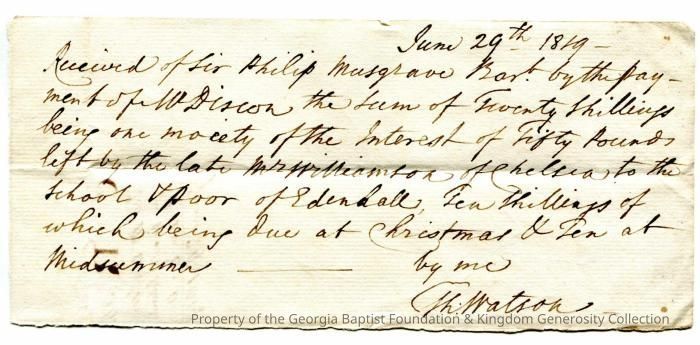 June 29th 1819 -
Received of Sir Philip Musgrave Bart by the pay-
ment of Mr Dixon the sum of Twenty Shillings
being one moiety of the Interest of Fifty Pounds
left by the late Mr Williamson of Chelsea to the
School & Poor of Edenhall, Ten Shillings of
which being due at Christmas & Ten at
Midsummer by me
Th. Watson
Property of the Georgia Baptist Foundation & Kingdom Generosity Collection